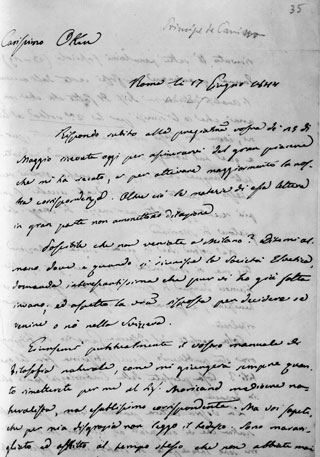 35
Principe de Canino
Carissimo Oken
Roma li 17 Giugno 1844
Rispondo subito alla pregiatma vostra dì 13 di
Maggio ricevuta oggi per assicurarvi del gran piacere
che mi ha recato, e per attivare maggiormente la nos-
tra corrispondenza. Oltre ciò le materie di essa lettera
in gran parte non ammettono dilazione
Possibile che non veniate a Milano? Ditemi al-
meno dove e quando si riunisce la Società Elvetica,
domanda interessantissima che pur vi ho già fatta
invano, ed aspetto la vostra risposta per decidere se
venire o nò nella Svizzera.
Giunsemi puntualmente il vostro manuale di
filosofia naturale, come mi giungerà sempre quan-
to rimetterete per me al Sigr. Moricand mediocre na-
turalista, ma esattissimo corrispondente. Ma voi sapete
che per mia disgrazia non leggo il tedesco. Sono mara-
gliato ed afflitto al tempo stesso che non abbiate mai